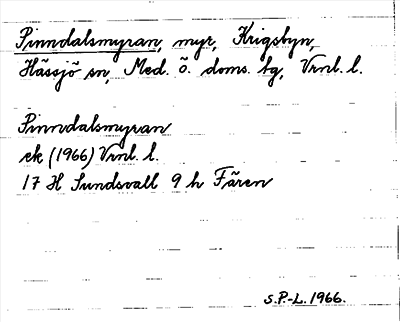 Pinndalsmyran, myr, Krigsbyn,
Hässjö sn, Med. ö. doms. tg, Vrnl. l.
Pinndalsmyran
ek (1966) Vrnl. l.
17 H Sundsvall 9 h Fären
S.P.-L. 1966.